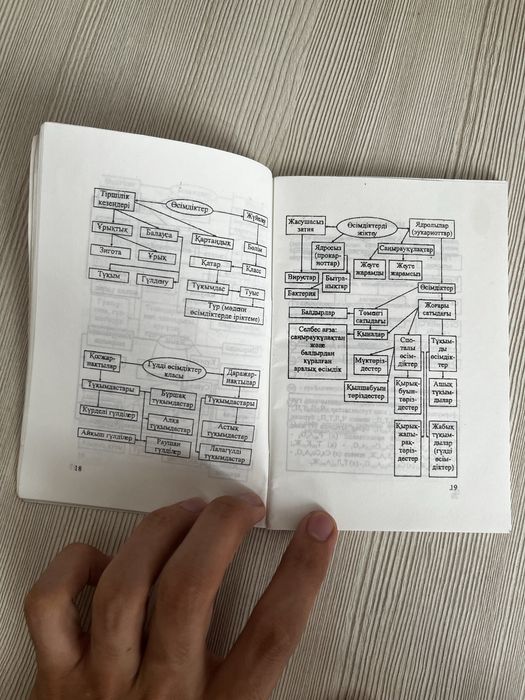 Тіршілік
кезеңдері
Өсімдіктер
Жүйелеу
Ұрықтық
Балауса
Қартаңдық
Бөлім
Зигота
Ұрық
Қатар
Класс
Тұқым
Гүлдену
Тұқымдас
Туыс
Түр (мәдени
өсімдіктерде іріктеме)
Қосжар-
нақтылар
Гүлді өсімдіктер
класы
Даражар-
нақтылар
Тұқымдастары
Бұршақ
тұқымдастар
Тұқымдастары
Күрделі гүлділер
Алқа
тұқымдастар
Астық
тұқымдастар
Айқыш гүлділер
Раушан
гүлділер
Лалагүлді
тұқымдастар
18
Жасушасыз
затия
Өсімдіктерді
жіктеу
Ядролылар
(эукариоттар)
Ядросыз
(прокар-
иоттар)
Саңырауқұлақтар
Жеуге
жарамды
Жеуге
жарамсыз
Вирустар
Бытра-
нықтар
Бактерия
Өсімдіктер
Балдырлар
Төменгі
сатыдағы
Жоғары
сатыдағы
Қыналар
Селбес ағза:
саңырауқұлақтан
және
балдырдан
құралған
аралық өсімдік
Мүктәріз-
дестер
Спо-
талы
өсім-
діктер
Тұқым-
ды
өсімдік-
тер
Қылшабуын
тәріздестер
Қырық-
буын-
тәріз-
дестер
Ашық
тұқым-
дылар
Қырық-
жапы-
рақ-
тәріз-
дестер
Жабық
тұқым-
дылар
(гүлді
өсім-
діктер)
19